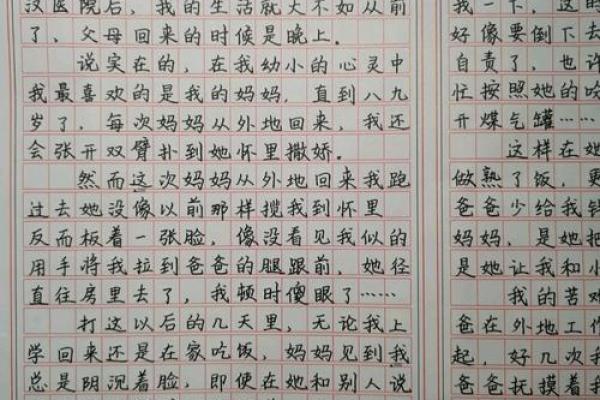 汉医院后，我的生活就大不如从前
了，父母回来的时候是晚上。
说实在的，在我幼小的心灵中
我最喜欢的是我的妈妈，直到八九
岁了，每次妈妈从外地回来，我还
会张开双臂扑到她怀里撒娇。
然而这次妈妈从外地回来我跑
过去她没像以前那样揽我到怀里
反而板着一张脸，像没看见我似的
用手将我拉到爸爸的腿跟前，她径
直往房里去了，我顿时傻眼了……
打这以后的几天里，无论我上
学回来还是在家吃饭，妈妈见到我
总是阴沉着脸，即使在她和别人说
我一下，这的
好像要倒下去
自责了，也许
忙按照她的吩
开煤气罐……
这样在她
做熟了饭，更
爸爸少给我钱
妈妈，是她把
是她让我和小
我的苦难
爸在外地工作
起，好几次我
爸爸抚摸着我